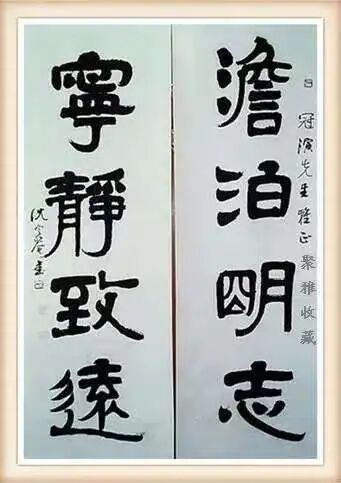 冠濱先生雅正
聚雅收藏
澹泊明志
寧靜致遠
沈定庵書